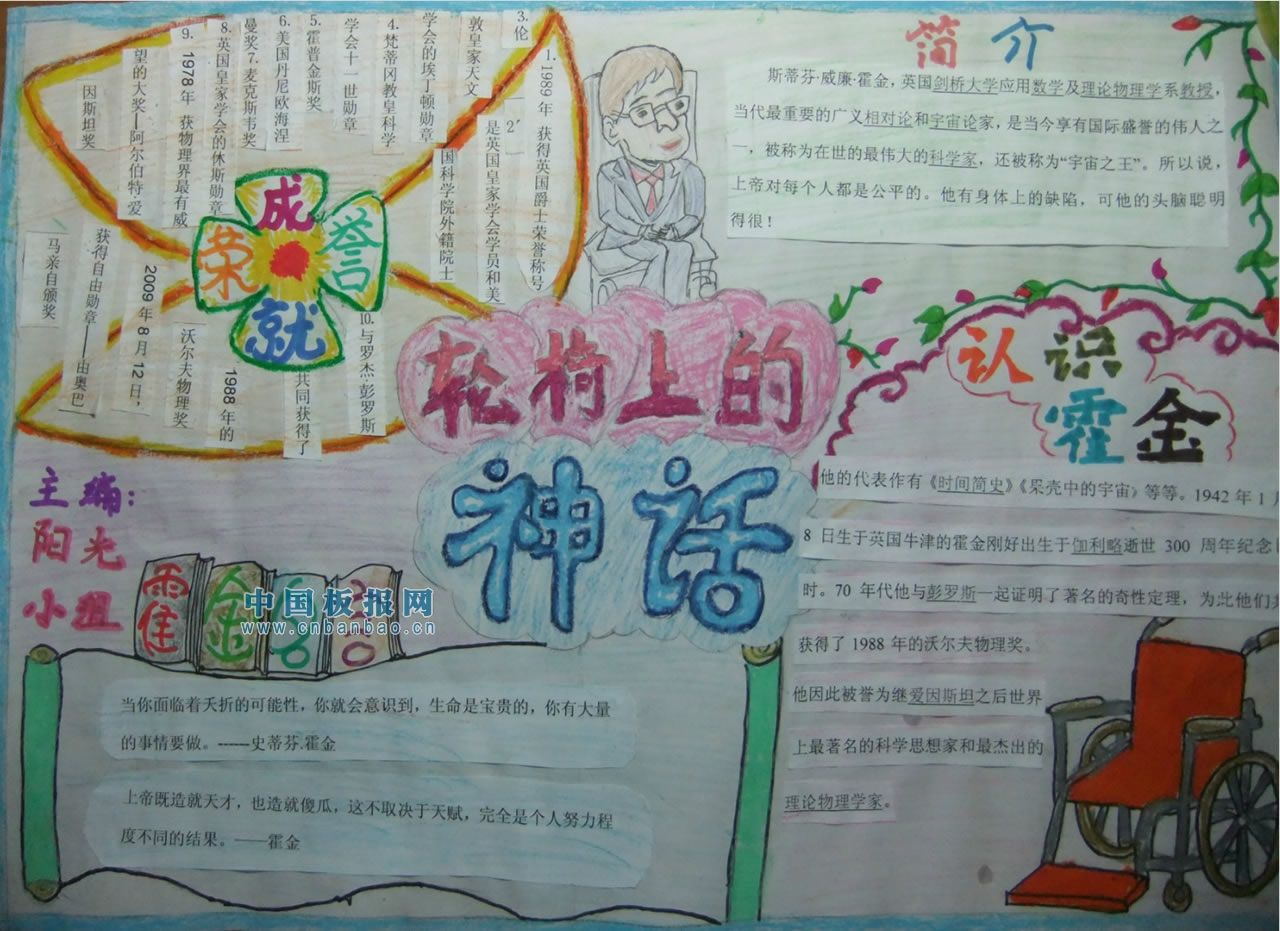 简介
斯蒂芬·威廉·霍金，英国剑桥大学应用数学及理论物理学系教授，
当代最重要的广义相对论和宇宙论家，是当今享有国际盛誉的伟人之
一，被称为在世的最伟大的科学家，还被称为“宇宙之王”。所以说，
上帝对每个人都是公平的。他有身体上的缺陷，可他的头脑聪明
得很！
成就
荣誉
1. 1989 年 获得英国爵士荣誉称号
2
是英国皇家学会学员和美
国科学院外籍院士
3. 伦
敦皇家天文
学会的埃丁顿勋章
4. 梵蒂冈教皇科学
学会十一世勋章
5. 霍普金斯奖
6. 美国丹尼欧海涅
曼奖 7. 麦克斯韦奖
8. 英国皇家学会的休斯勋章
9. 1978 年 获物理界最有威
望的大奖—阿尔伯特·爱
因斯坦奖
10. 与罗杰·彭罗斯
共同获得了
1988 年的
沃尔夫物理奖
2009 年 8 月 12 日，
获得自由勋章——由奥巴
马亲自颁奖
轮椅上的
神话
认识
霍金
他的代表作有《时间简史》《果壳中的宇宙》等等。1942 年 1 月
8 日生于英国牛津的霍金刚好出生于伽利略逝世 300 周年纪念
时。70 年代他与彭罗斯一起证明了著名的奇性定理，为此他们共
获得了 1988 年的沃尔夫物理奖。
他因此被誉为继爱因斯坦之后世界
上最著名的科学思想家和最杰出的
理论物理学家。
主编：
阳光
小组
霍金名言
中国板报网
www.cnbanbao.cn
当你面临着夭折的可能性，你就会意识到，生命是宝贵的，你有大量
的事情要做。------史蒂芬.霍金
上帝既造就天才，也造就傻瓜，这不取决于天赋，完全是个人努力程
度不同的结果。——霍金